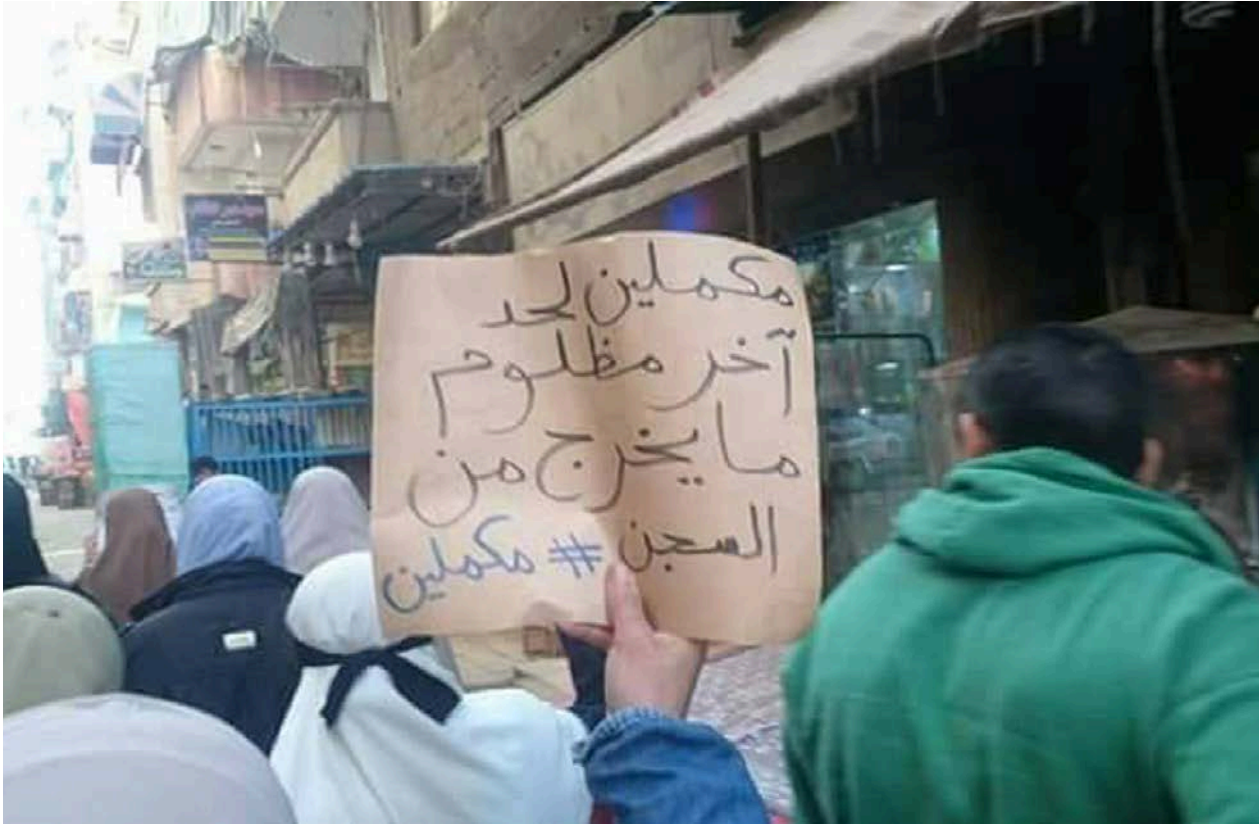 مكملين لحد
آخر مظلوم
ما يخرج من
السجن # مكملين